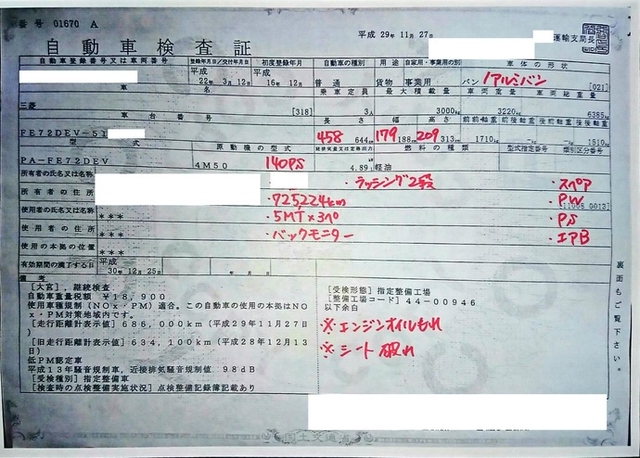 番号 01670 A
平成 29年 11月 27日
運輸支局長
自動車検査証
自動車登録番号又は車両番号 登録年月日/交付年月日 初度登録年月 自動車の種別 用途 自家用・事業用の別 車体の形状
平成 22年 3月 12日 平成 16年 12月 普通 貨物 事業用 バン /アルミバン [021]
車名 乗車定員 最大積載量 車両重量 車両総重量
三菱 [318] 3人 3000kg 3220kg 6385kg
車台番号 長さ 幅 高さ 前前軸重 前後軸重 後前軸重 後後軸重
FE72DEV-51 458 644cm 179 188cm 209 313cm 1710kg -kg -kg 1510kg
型式 原動機の型式 燃料の種類 型式指定番号 類別区分番号
PA-FE72DEV 4M50 140PS 4.89L 軽油
所有者の氏名又は名称 ・ラッシング2段 ・スペア
所有者の住所 ・725224km ・PW
使用者の氏名又は名称 *** ・5MT×3ペ ・PS
使用者の住所 *** ・バックモニター ・エアB
使用の本拠の位置 ***
有効期間の満了する日 平成 30年 12月 25日
備考
[大宮], 継続検査
自動車重量税額 ¥18,900
使用車種規制(NOx・PM)適合。この自動車の使用の本拠はNO
x・PM対策地域内です。
[走行距離計表示値] 686,000km (平成29年11月27日)
[旧走行距離計表示値] 634,100km (平成28年12月13
日)
低PM認定車
平成13年騒音規制車, 近接排気騒音規制値 98dB
[受検種別] 指定整備車
[検査時の点検整備実施状況] 点検整備記録簿記載あり
[受検形態] 指定整備工場
[整備工場コード] 44-00946
以下余白
※エンジンオイルもれ
※シート破れ
裏面もご覧下さい。